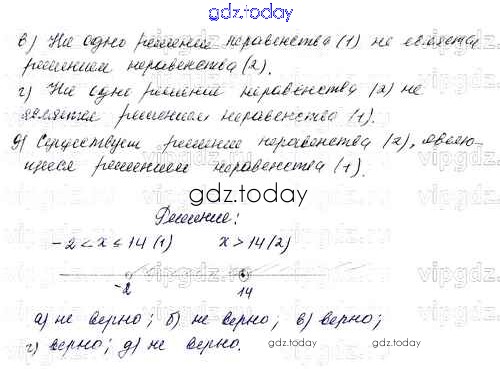 gdz.today
в) Ни одно решение неравенства (1) не является
решением неравенства (2).
г) Ни одно решение неравенства (2) не
является решением неравенства (1).
д) Существует решение неравенства (2), являю-
щееся решением неравенства (1).
gdz.today
Решение:
-2 < x ≤ 14 (1) x > 14 (2)
-2 14
а) не верно; б) не верно; в) верно;
г) верно; д) не верно.
gdz.today